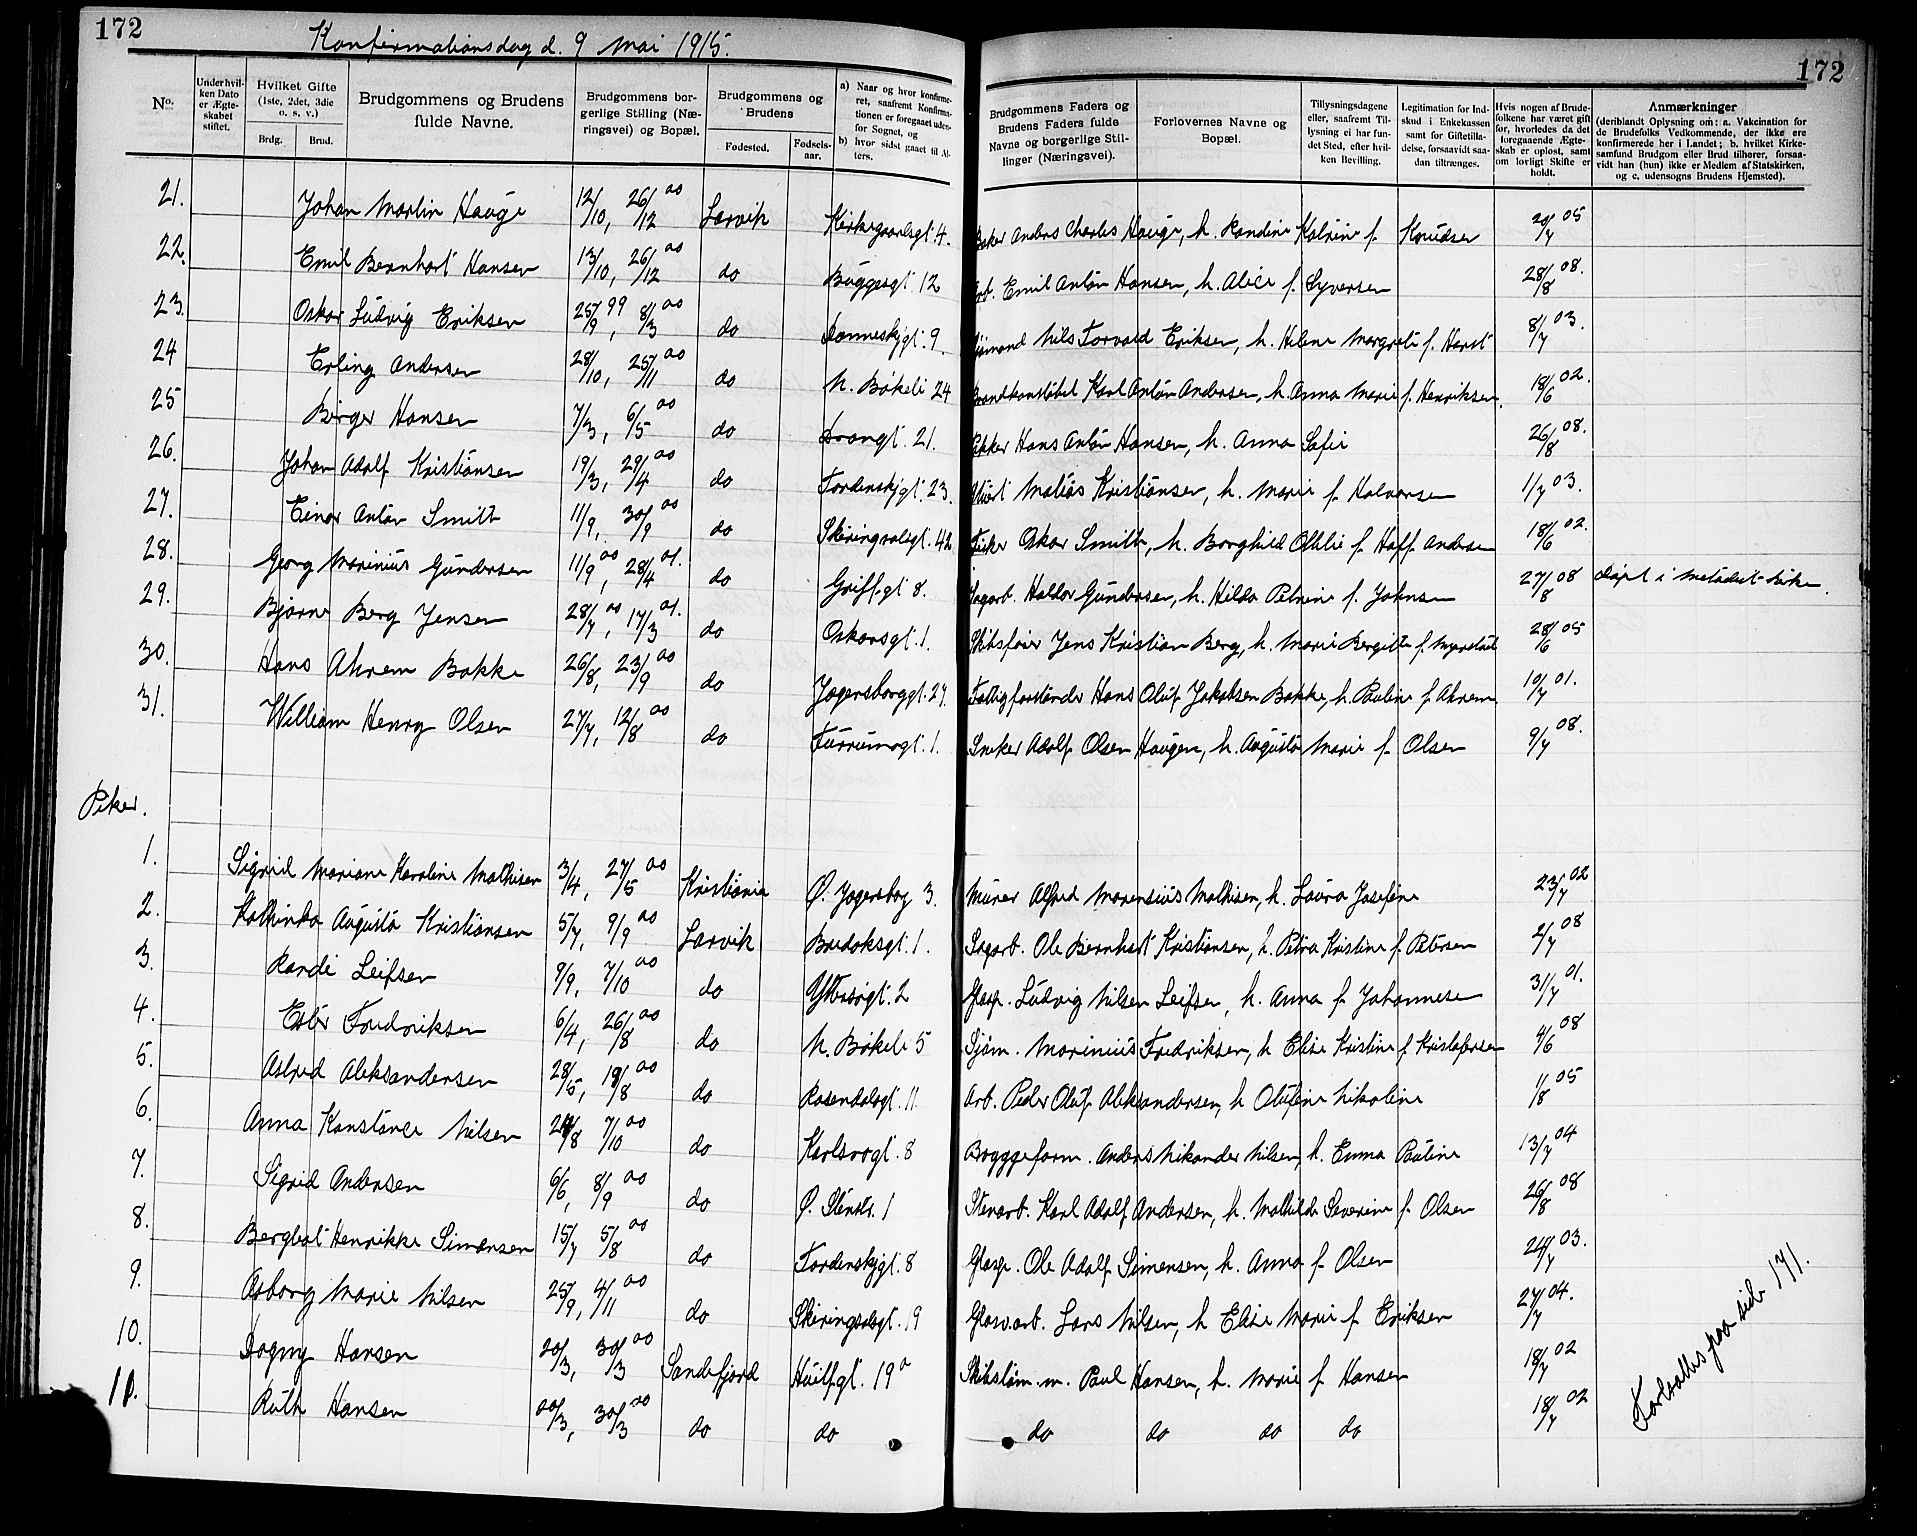 172
Konfirmationsdag d. 9 Mai 1915.
172
No.
Under hvilken Dato er Ægteskabet stiftet.
Hvilket Gifte (1ste, 2det, 3die o. s. v.)
Brdg.
Brud.
Brudgommens og Brudens fulde Navne.
Brudgommens borgerlige Stilling (Næringsvei) og Bopæl.
Brudgommens og Brudens
Fødested.
Fødselsaar.
a) Naar og hvor konfirmeret, saafremt Konfirmationen er foregaaet udenfor Sognet, og
b) hvor sidst gaaet til Alters.
Brudgommens Faders og Brudens Faders fulde Navne og borgerlige Stillinger (Næringsvei).
Forlovernes Navne og Bopæl.
Tillysningsdagene eller, saafremt Tillysning ei har fundet Sted, efter hvilken Bevilling.
Legitimation for Indskud i Enkekassen samt for Giftetilladelse, forsaavidt saadan tiltrænges.
Hvis nogen af Brudefolkene har været gift før, hvorledes da det foregaaende Ægteskab er opløst, samt om lovligt Skifte er holdt.
Anmærkninger
(deriblandt Oplysning om: a. Vakcination for de Brudefolks Vedkommende, der ikke ere konfirmerede her i Landet; b. hvilket Kirkesamfund Brudgom eller Brud tilhører, forsaavidt han (hun) ikke er Medlem af Statskirken, og c. udensogns Brudens Hjemsted).
21. Johan Martin Hauge 12/10, 26/12 00 Larvik Kirkegaardsgt. 4. Baker Anders Charles Hauge, h. Randine Katrine f. Knudsen 20/7 05
22. Emil Bernhart Hansen 13/10, 26/12 00 do Buggesgt. 12 Arb. Emil Anton Hansen, h. Alice f. Syversen 28/8 08.
23. Oskar Ludvig Eriksen 25/9 99, 8/3 00 do Danneskjgt. 9. Sjømand Nils Torvald Eriksen, h. Helene Margrete f. Harst 8/7 03.
24 Erling Andersen 28/10, 25/11 00 do N. Bøkeli 24 Brandkonstabel Karl Anton Andersen, h. Anna Marie f. Henriksen. 18/6 02.
25 Birger Hansen 7/3, 6/5 00 do Drangt. 21. Hans Anton Hansen, h. Anna Sofie 26/8 08.
26. Johan Adolf Kristiansen 19/3, 29/4 00 do Tordenskjgt. 23. Matias Kristiansen, h. Marie f. Halvorsen 1/7 03.
27. Einar Anton Smith 11/9, 30/9 00 do Skiringsalgt. 42 Fisker Oskar Smith, h. Borghild Otilie f. Hoff Andersen 18/6 02.
28. Georg Marinius Gundersen 11/9 00, 28/4 01. do Griffgt 8. Sagarb. Haldor Gundersen, h. Hilda Petrine f. Johnsen 27/8 08 døpt i metodist-kirken.
29. Bjarne Berg Jensen 28/7 00, 17/3 01. do Oskarsgt. 1. Skibsfører Jens Kristian Berg, h. Marie Bergitte f. Myrestad 28/6 05
30. Hans Ahrem Bakke 26/8, 23/9 00 do Jegersborggt. 29. Fattigforstander Hans Oluf Jakobsen Bakke, h. Pauline f. Ahrem 10/7 01.
31. William Henry Olsen 27/7, 12/8 00 do Furrumsgt. 1. Snekker Adolf Olsen Haugen, h. Augusta Marie f. Olsen 9/7 08.
Piker.
1. Sigrid Mariane Karoline Mathisen 3/4, 27/5 00 Kristiania Ø. Jegersborg 3. Murer Alfred Marensius Mathisen, h. Laura Josefine 23/7 02
2. Kathinka Augusta Kristiansen 5/7, 9/9 00 Larvik Bredoksgt. 1. Sagarb. Ole Bernhart Kristiansen, h. Petra Kristine f. Petersen 2/7 08
3. Randi Leifsen 9/9, 7/10 00 do Yttersøgt. 2 Glasp. Ludvig Nilsen Leifsen, h. Anna f. Johannesen 31/7 01.
4. Ester Fredriksen 6/4, 26/8 00 do N. Bøkeli 5 Sjøm. Marinius Fredriksen, h Elise Kristine f. Kristofersen 4/6 08
5. Astrid Aleksandersen 28/5, 19/8 00 do Rosendalsgt. 11. Arb. Peder Oluf Aleksandersen, h Olufine Nikoline 1/8 05
6. Anna Konstance Nilsen 24/8 7/10 00 do Karlsrogt. 8 Bryggeform. Anders Nikander Nilsen, h. Emma Pauline 13/7 04
7. Sigrid Andersen 6/6, 8/9 00 do Ø. Stenstr. 1 Stenarb. Karl Adolf Andersen, h. Mathilde Severine f. Olsen 26/8 08
8. Bergliot Henrikke Simensen 15/7 5/8 00 do Tordenskjgt. 8 Glasp. Ole Adolf Simensen, h. Anna f. Olsen 24/7 03.
9. Asborg Marie Nilsen 25/9, 4/11 00 do Skiringsalgt. 19 Glasv.arb. Lars Nilsen, h Elise Marie f. Eriksen 27/7 04.
10. Dagny Hansen 20/3, 30/3 00 Sandefjord Huitfgt. 19a Skibstøm.m. Paul Hansen, h. Marie f Hansen 18/7 02
11. Ruth Hansen 20/3, 30/3 00 do do do do do do 18/7 02
Fortsættes paa side 171.